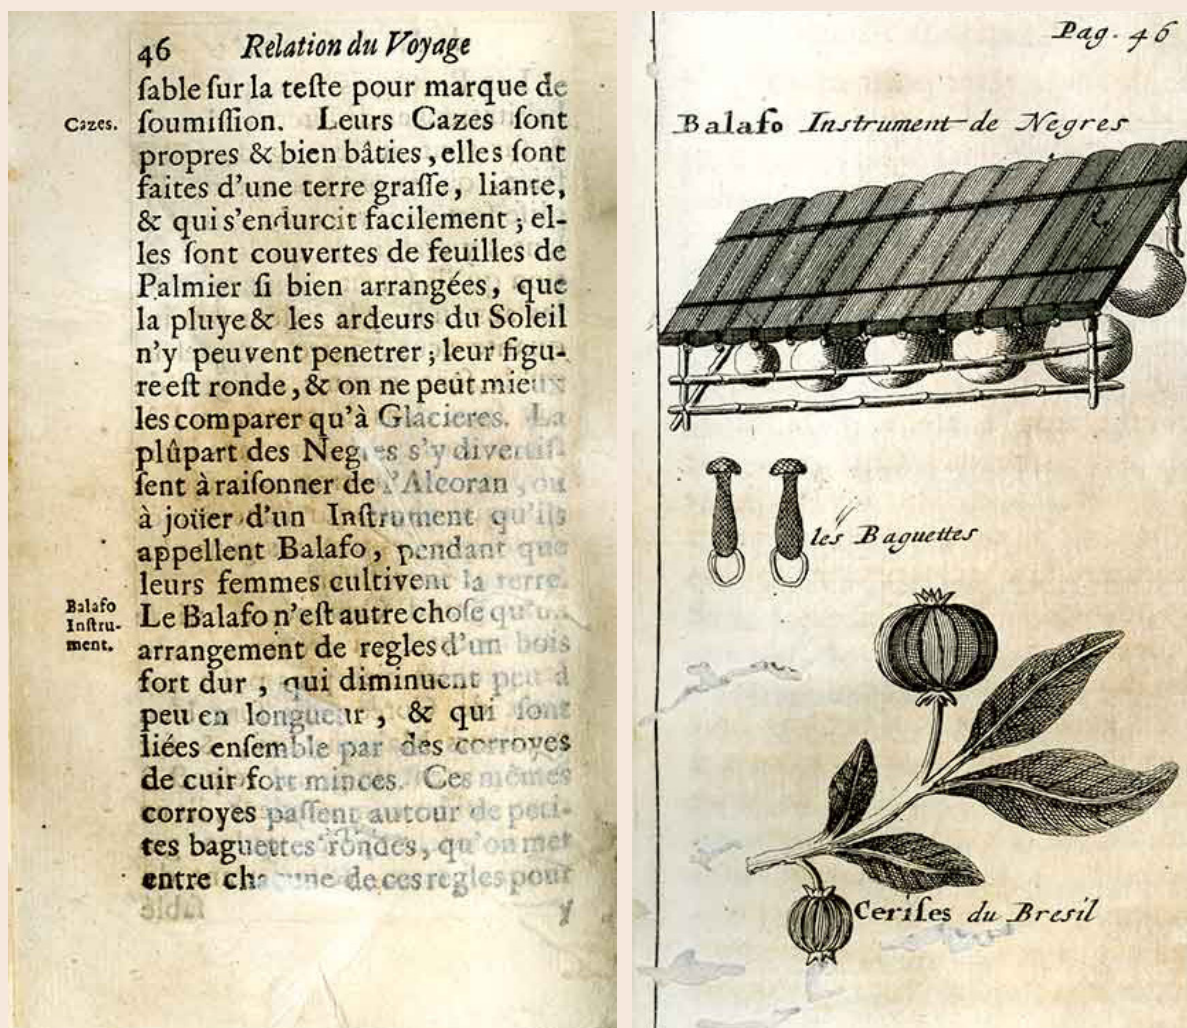 46 Relation du Voyage
ſable ſur la teſte pour marque de
Cazes.
ſoumiſſion. Leurs Cazes ſont
propres & bien bâties, elles ſont
faites d'une terre graſſe, liante,
& qui s'endurcit facilement ; el-
les ſont couvertes de feuilles de
Palmier ſi bien arrangées, que
la pluye & les ardeurs du Soleil
n'y peuvent penetrer ; leur figu-
re eſt ronde, & on ne peut mieux
les comparer qu'à Glacieres. La
plûpart des Negres s'y divertiſ-
ſent à raiſonner de l'Alcoran, ou
à joüer d'un Inſtrument qu'ils
appellent Balafo, pendant que
leurs femmes cultivent la terre.
Balafo
Inſtru-
ment.
Le Balafo n'eſt autre choſe qu'un
arrangement de regles d'un bois
fort dur, qui diminuent peu à
peu en longueur, & qui ſont
liées enſemble par des corroyes
de cuir fort minces. Ces mêmes
corroyes paſſent autour de peti-
tes baguettes rondes, qu'on met
entre chacune de ces regles pour
Pag. 46
Balafo Instrument de Negres
les Baguettes
Ceriſes du Bresil